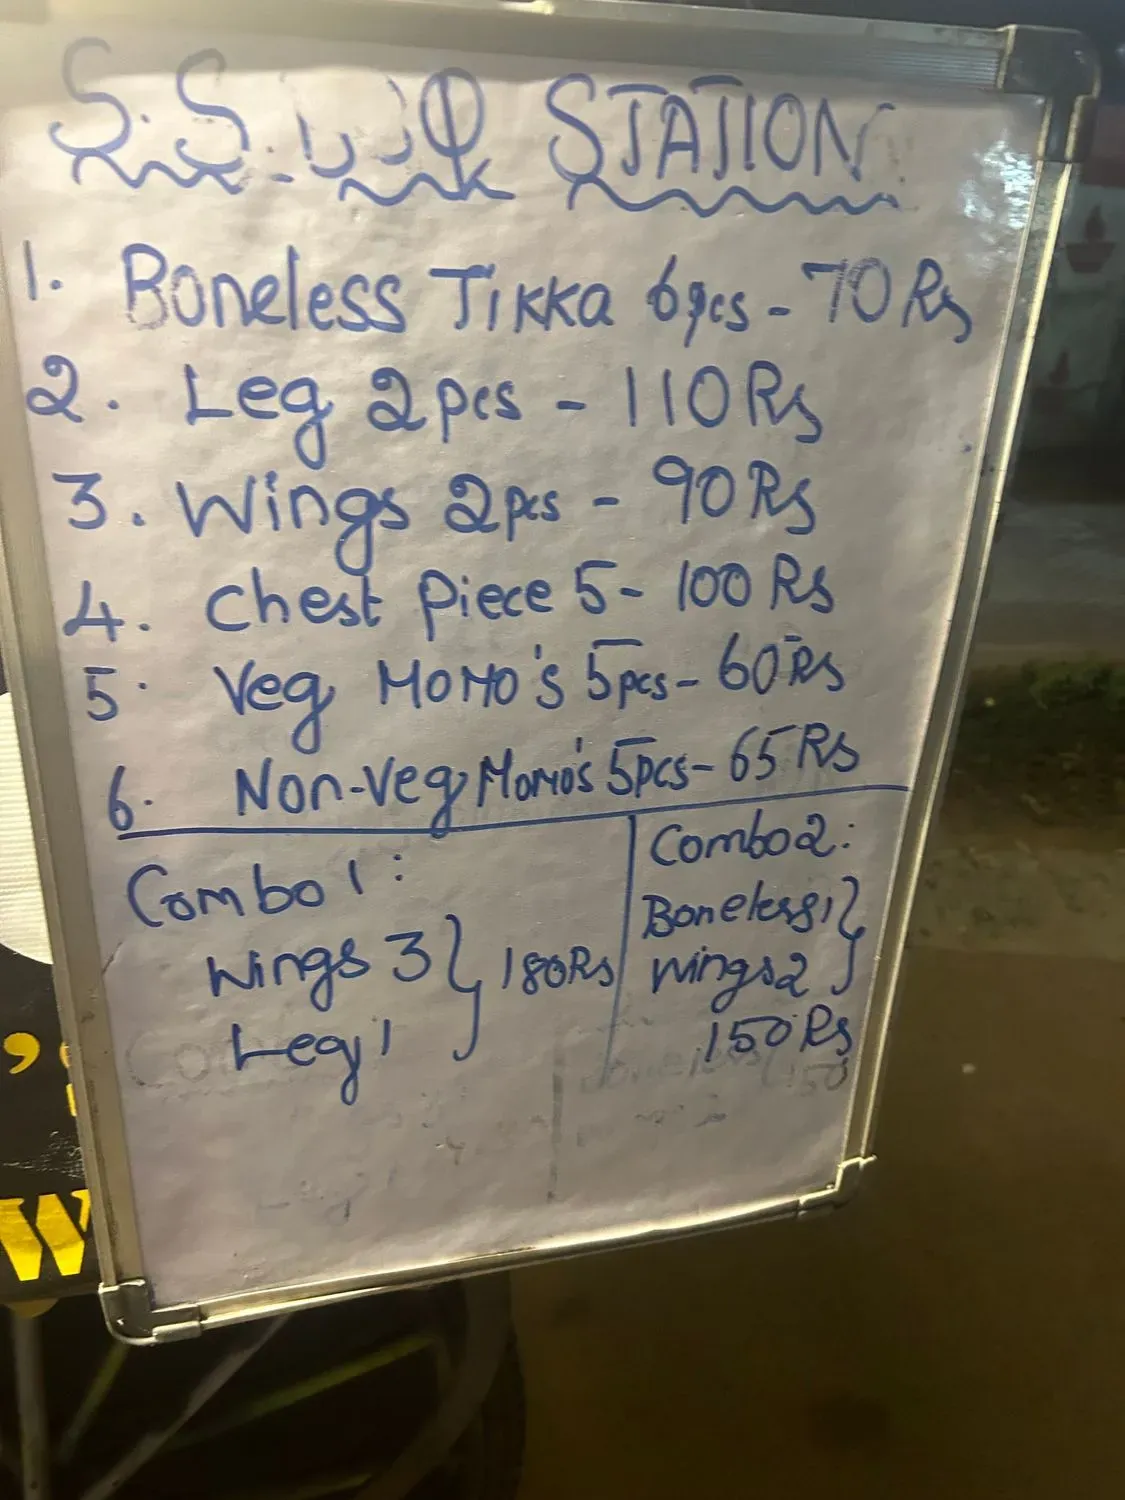 S.S. BBQ STATION
1. Boneless Tikka 6pcs - 70 Rs
2. Leg 2pcs - 110 Rs
3. Wings 2pcs - 90 Rs
4. Chest Piece 5 - 100 Rs
5. Veg MoMo's 5pcs - 60 Rs
6. Non-Veg MoMo's 5pcs - 65 Rs
Combo 1:
Wings 3
Leg 1
180 Rs
Combo 2:
Boneless 1
Wings 2
150 Rs
W